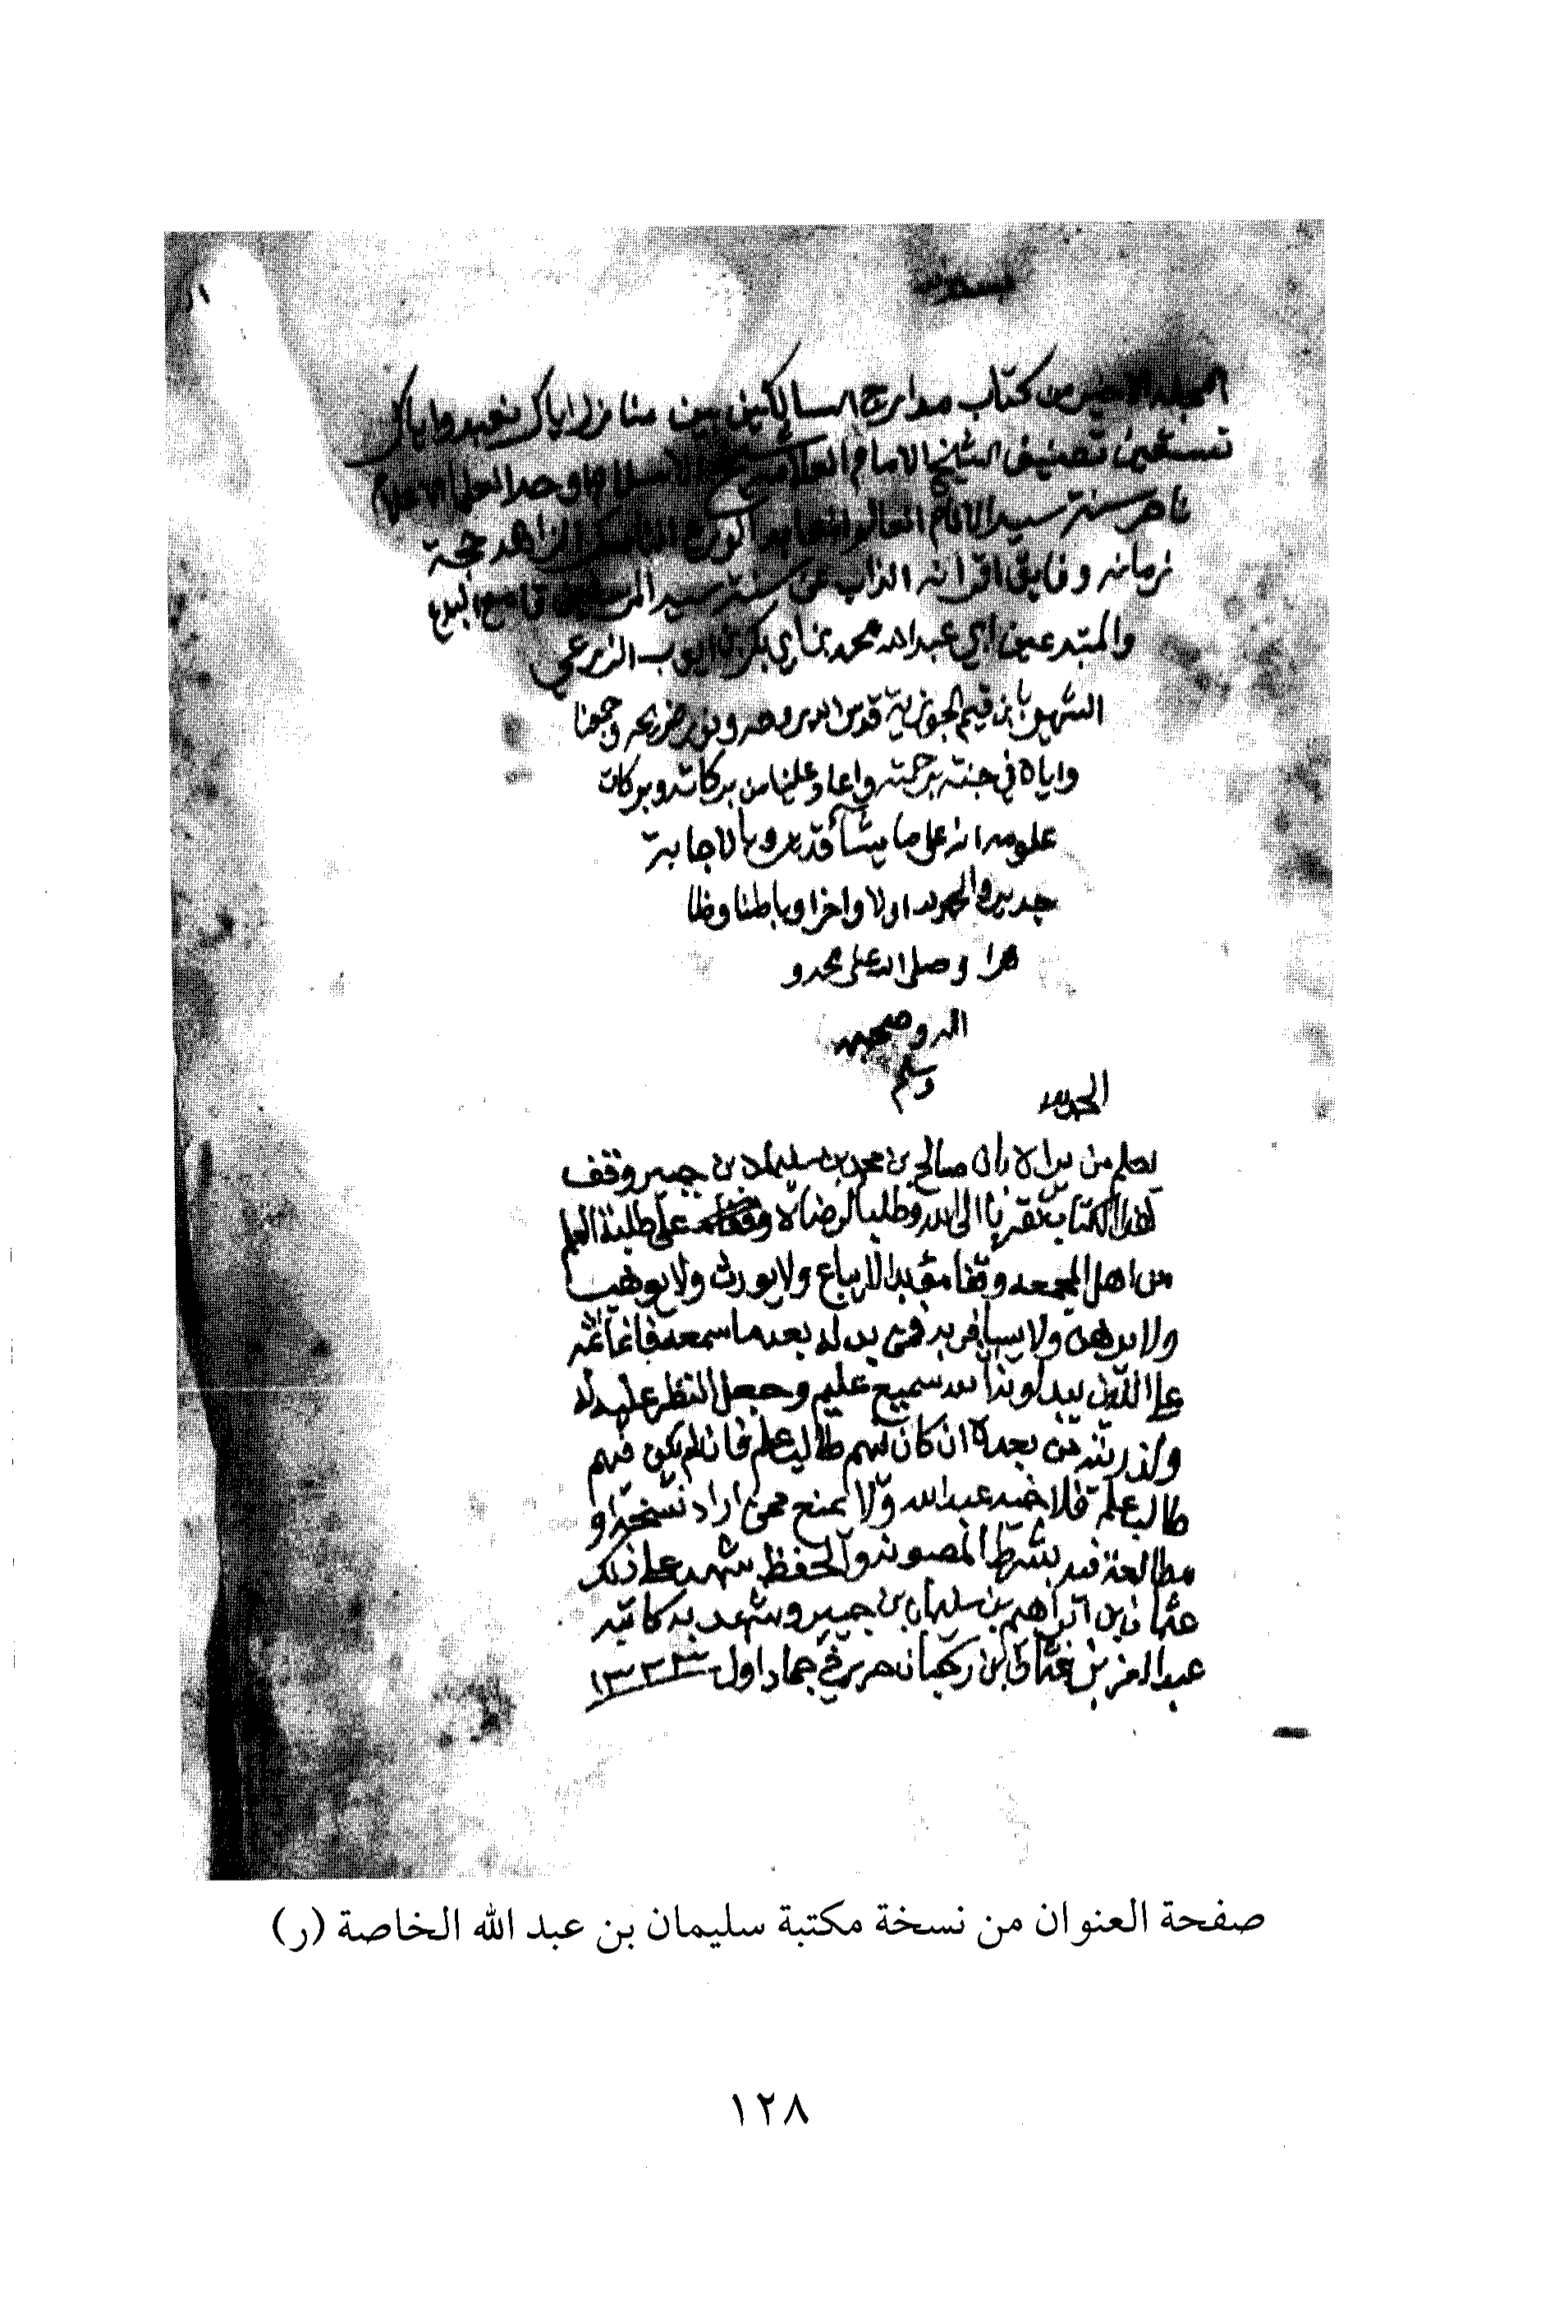 المجلد الاخير من كتاب مدارج السالكين بين منازل اياك نعبد واياك
نستعين تصنيف الشيخ الامام العلامة شيخ الاسلام اوحد العلما الاعلام
ناصر سنة سيد الانام العالم العابد الورع الناسك الزاهد حجة
زمانه وفايق اقرانه الذاب عن سنة سيد المرسلين قامع البدع
والمبتدعين ابي عبد الله محمد بن ابي بكر بن ايوب الزرعي
الشهير بابن قيم الجوزية قدس الله روحه ونور ضريحه وجمعنا
واياه في جنته برحمته واعاد علينا من بركاته وبركات
علومه انه على ما يشآء قدير وبالاجابة
جدير والحمد لله اولا واخرا وباطنا وظا
هرا وصلى الله على محمد و
اله وصحبه
وسلم
الحمد لله
يعلم من يراه بان صالح بن محمد بن سليمان بن جبير وقف
هذا الكتاب تقربا الى الله وطلبا لرضاه على طلبة العلم
من اهل المجمعه وقفا مؤبدا لا يباع ولا يورث ولا يوهب
ولا يرهن ولا يسافر به فمن بدله بعد ما سمعه فانما اثمه
على الذين يبدلونه ان الله سميع عليم وجعل النظر عليه له
ولذريته من بعده ان كان فيهم طالب علم فان لم يكن فيهم
طالب علم فلاخيه عبد الله ولا يمنع من اراد نسخه او
مطالعة فيه بشرط المصونه والحفظ شهد على ذلك
عثمان بن ابراهيم بن سليمان بن جبير وشهد به كاتبه
عبد العزيز بن بن ركبان حرر في جماد اول ١٣٣٣
صفحة العنوان من نسخة مكتبة سليمان بن عبد الله الخاصة (ر)
١٢٨